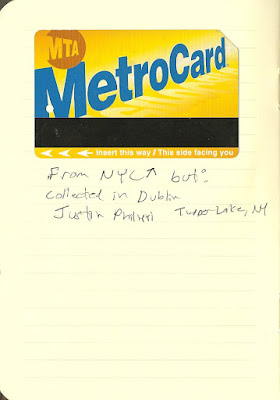 MTA
MetroCard
Insert this way / This side facing you
From NYC↑ but:
collected in Dublin
Justin Tupper Lake, NY